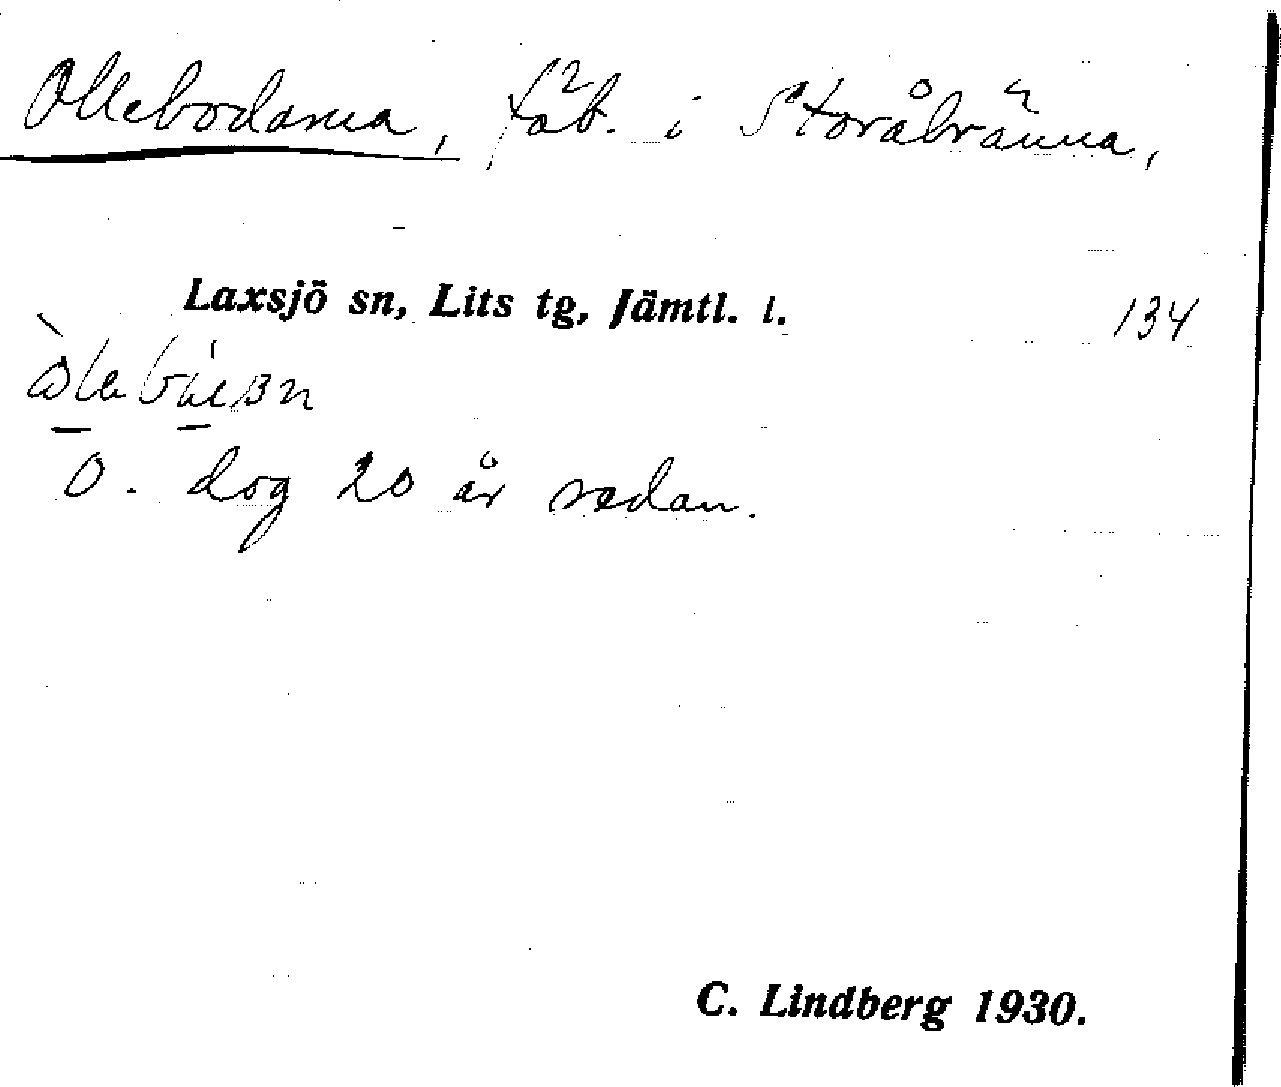 Ollebodarna, fäb. i Storåbränna,
Laxsjö sn, Lits tg, Jämtl. l.
134
O. dog 20 år sedan.
C. Lindberg 1930.